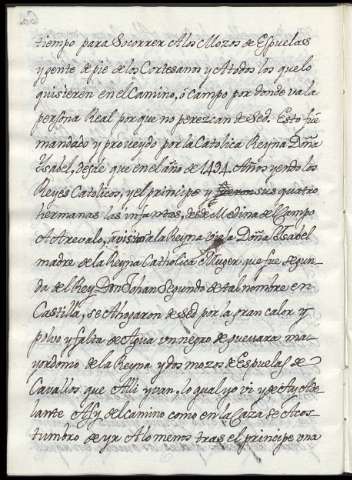 tiempo para Socorrer A los Mozos de Espuelas
y gente de pie de los Cortesanos y A todos los que lo
quisieren en el Camino, ó Campo por donde va la
persona Real porque no perezcan de sed. Esto fue
mandado y proueydo por la Catolica Reyna Doña
Isabel, desde que en el año de 1494. Años yendo los
Reyes Catolicos, y el principe y sus quatro
hermanas las infantas, desde Medina del Campo
A Arevalo, a visitar a la Reyna vieja Doña Isabel
madre de la Reyna Catholica Muger que fue segun-
da del Rey Don Johan Segundo de tal nombre en
Castilla, se Ahogaron de sed por la gran calor y
polvo y falta de Agua vn negro de guevara ma-
yordomo de la Reyna y dos mozos de Espuelas de
Cavallos que Alli yvan, lo qual yo vi y de Ay Ade
lante Assy de camino como en la Caza se Acos-
tumbro de yr A lo menos tras el principe vna